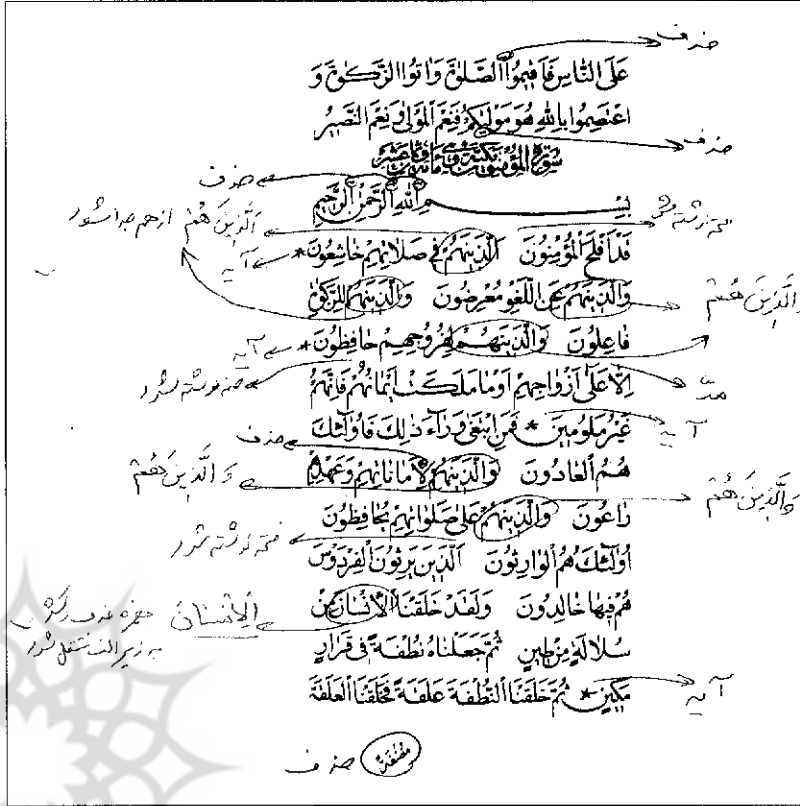 حذف
عَلَى النَّاسِ فَاَقِیمُوا الصَّلٰوةَ وَ اتُوا الزَّکٰوةَ وَ
اعْتَصِمُوا بِاللّٰهِ هُوَ مَوْلٰیکُمْ فَنِعْمَ الْمَوْلٰی وَ نِعْمَ النَّصِیرُ
حذف
سُورَةُ الْمُؤْمِنُونَ مَکِّیَّةٌ وَهِیَ
حذف
بِسْمِ اللّٰهِ الرَّحْمٰنِ الرَّحِیمِ
الَّذِینَ هُمْ از هم جدا شود
قَدْ اَفْلَحَ الْمُؤْمِنُونَ اَلَّذِینَهُمْ فِی صَلَاتِهِمْ خَاشِعُونَ * آیه
وَالَّذِینَهُمْ عَنِ اللَّغْوِ مُعْرِضُونَ وَالَّذِینَهُمْ لِلزَّکٰوةِ
وَالَّذِینَ هُمْ
فَاعِلُونَ وَالَّذِینَهُمْ لِفُرُوجِهِمْ حَافِظُونَ * آیه
اِلَّا عَلٰی اَزْوَاجِهِمْ اَوْ مَا مَلَکَتْ اَیْمَانُهُمْ فَاِنَّهُمْ
مدّ
غَیْرُ مَلُومِینَ * فَمَنِ ابْتَغٰی وَرَآءَ ذٰلِکَ فَاُولٰٓئِکَ
آیه
حذف
هُمُ الْعَادُونَ وَالَّذِینَهُمْ لِاَمَانَاتِهِمْ وَعَهْدِهِمْ
وَ الَّذِینَ هُمْ
رَاعُونَ وَالَّذِینَهُمْ عَلٰی صَلَوَاتِهِمْ یُحَافِظُونَ
وَالَّذِینَ هُمْ
فتحه نوشته شود
اُولٰٓئِکَ هُمُ الْوَارِثُونَ اَلَّذِینَ یَرِثُونَ الْفِرْدَوْسَ
هُمْ فِیهَا خَالِدُونَ وَلَقَدْ خَلَقْنَا الْاِنْسَانَ مِنْ
اَلْاِنْسَانَ همزه حذف و کسره
به زیر الف منتقل شود
سُلَالَةٍ مِنْ طِینٍ ثُمَّ جَعَلْنَاهُ نُطْفَةً فِی قَرَارٍ
مَکِینٍ * ثُمَّ خَلَقْنَا النُّطْفَةَ عَلَقَةً فَخَلَقْنَا الْعَلَقَةَ
آیه
مُضْغَةً حذف